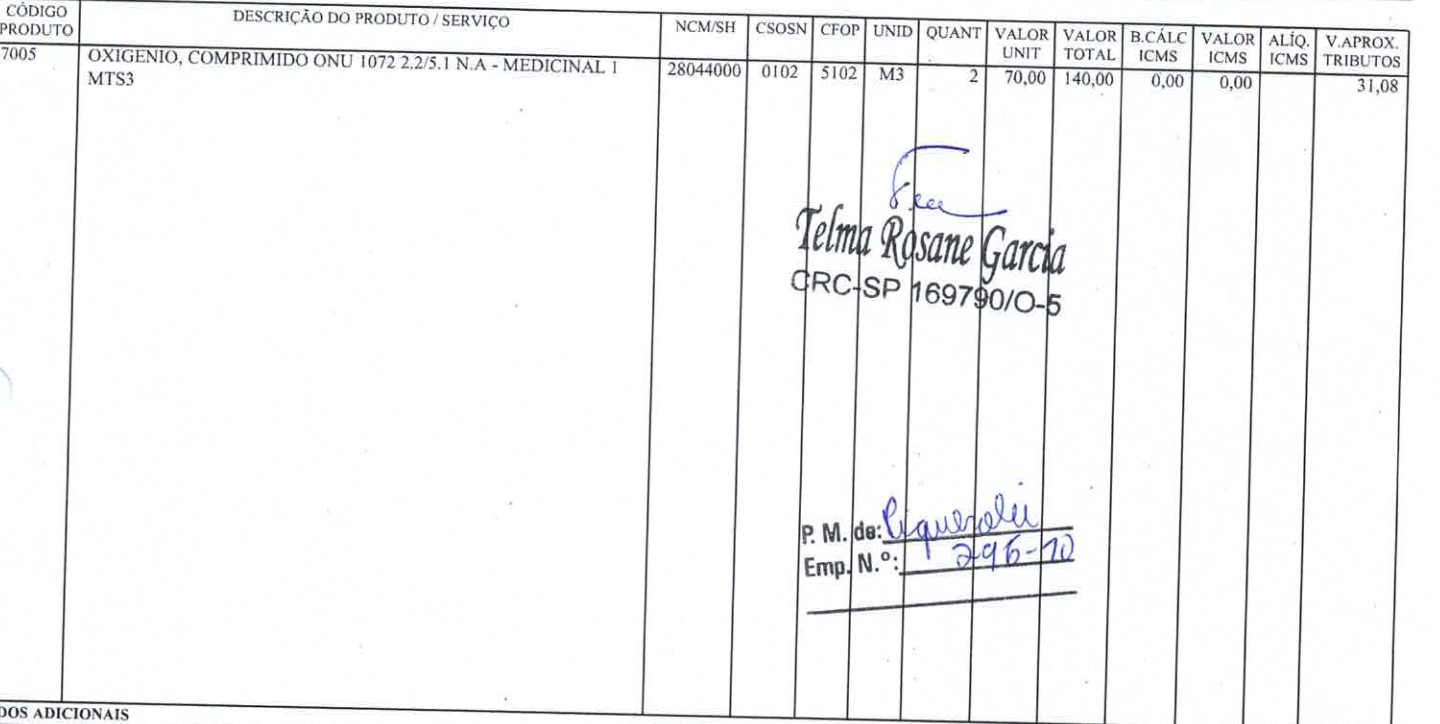 CÓDIGO PRODUTO DESCRIÇÃO DO PRODUTO / SERVIÇO NCM/SH CSOSN CFOP UNID QUANT VALOR UNIT VALOR TOTAL B.CÁLC ICMS VALOR ICMS ALÍQ. ICMS V.APROX. TRIBUTOS
7005 OXIGENIO, COMPRIMIDO ONU 1072 2.2/5.1 N.A - MEDICINAL 1 28044000 0102 5102 M3 2 70,00 140,00 0,00 0,00 31,08
MTS3
Telma Rosane Garcia
CRC-SP 169790/O-5
P. M. de:
Emp. N.º: 296-10
DOS ADICIONAIS